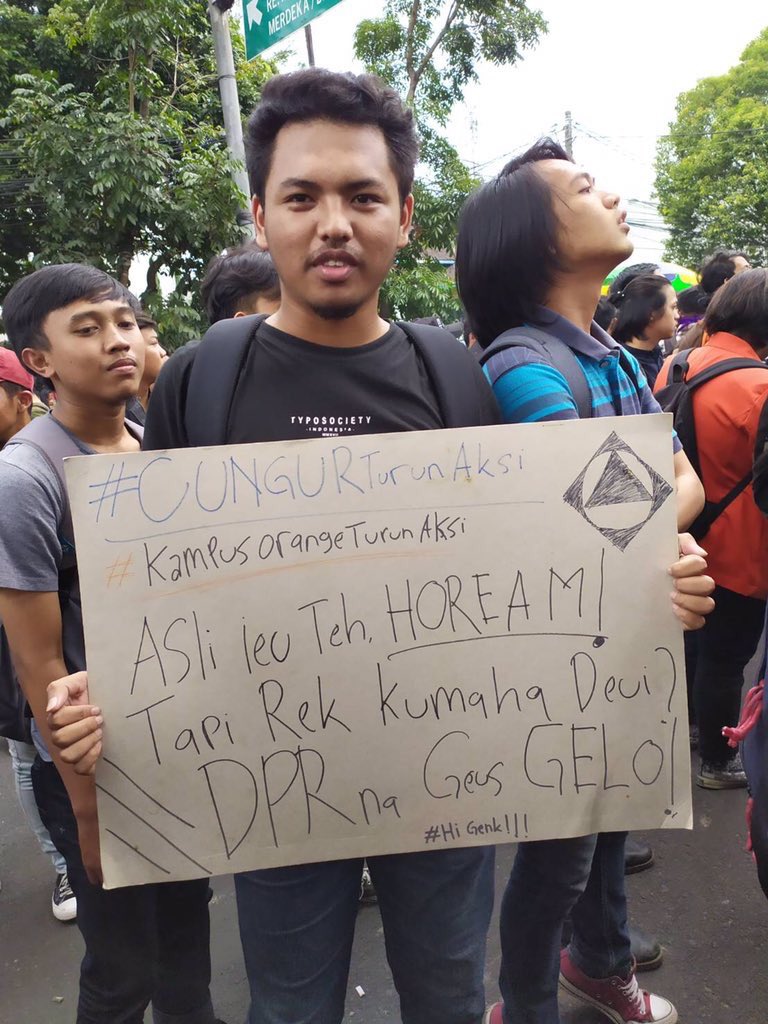 MERDEKA
TYPOSOCIETY
INDONESIA
#CUNGURTurunAksi
#KampusOrangeTurunAksi
ASli ieu Teh, HOREAM!
Tapi Rek Kumaha Deui?
DPR na Geus GELO!
#Hi Genk!!!